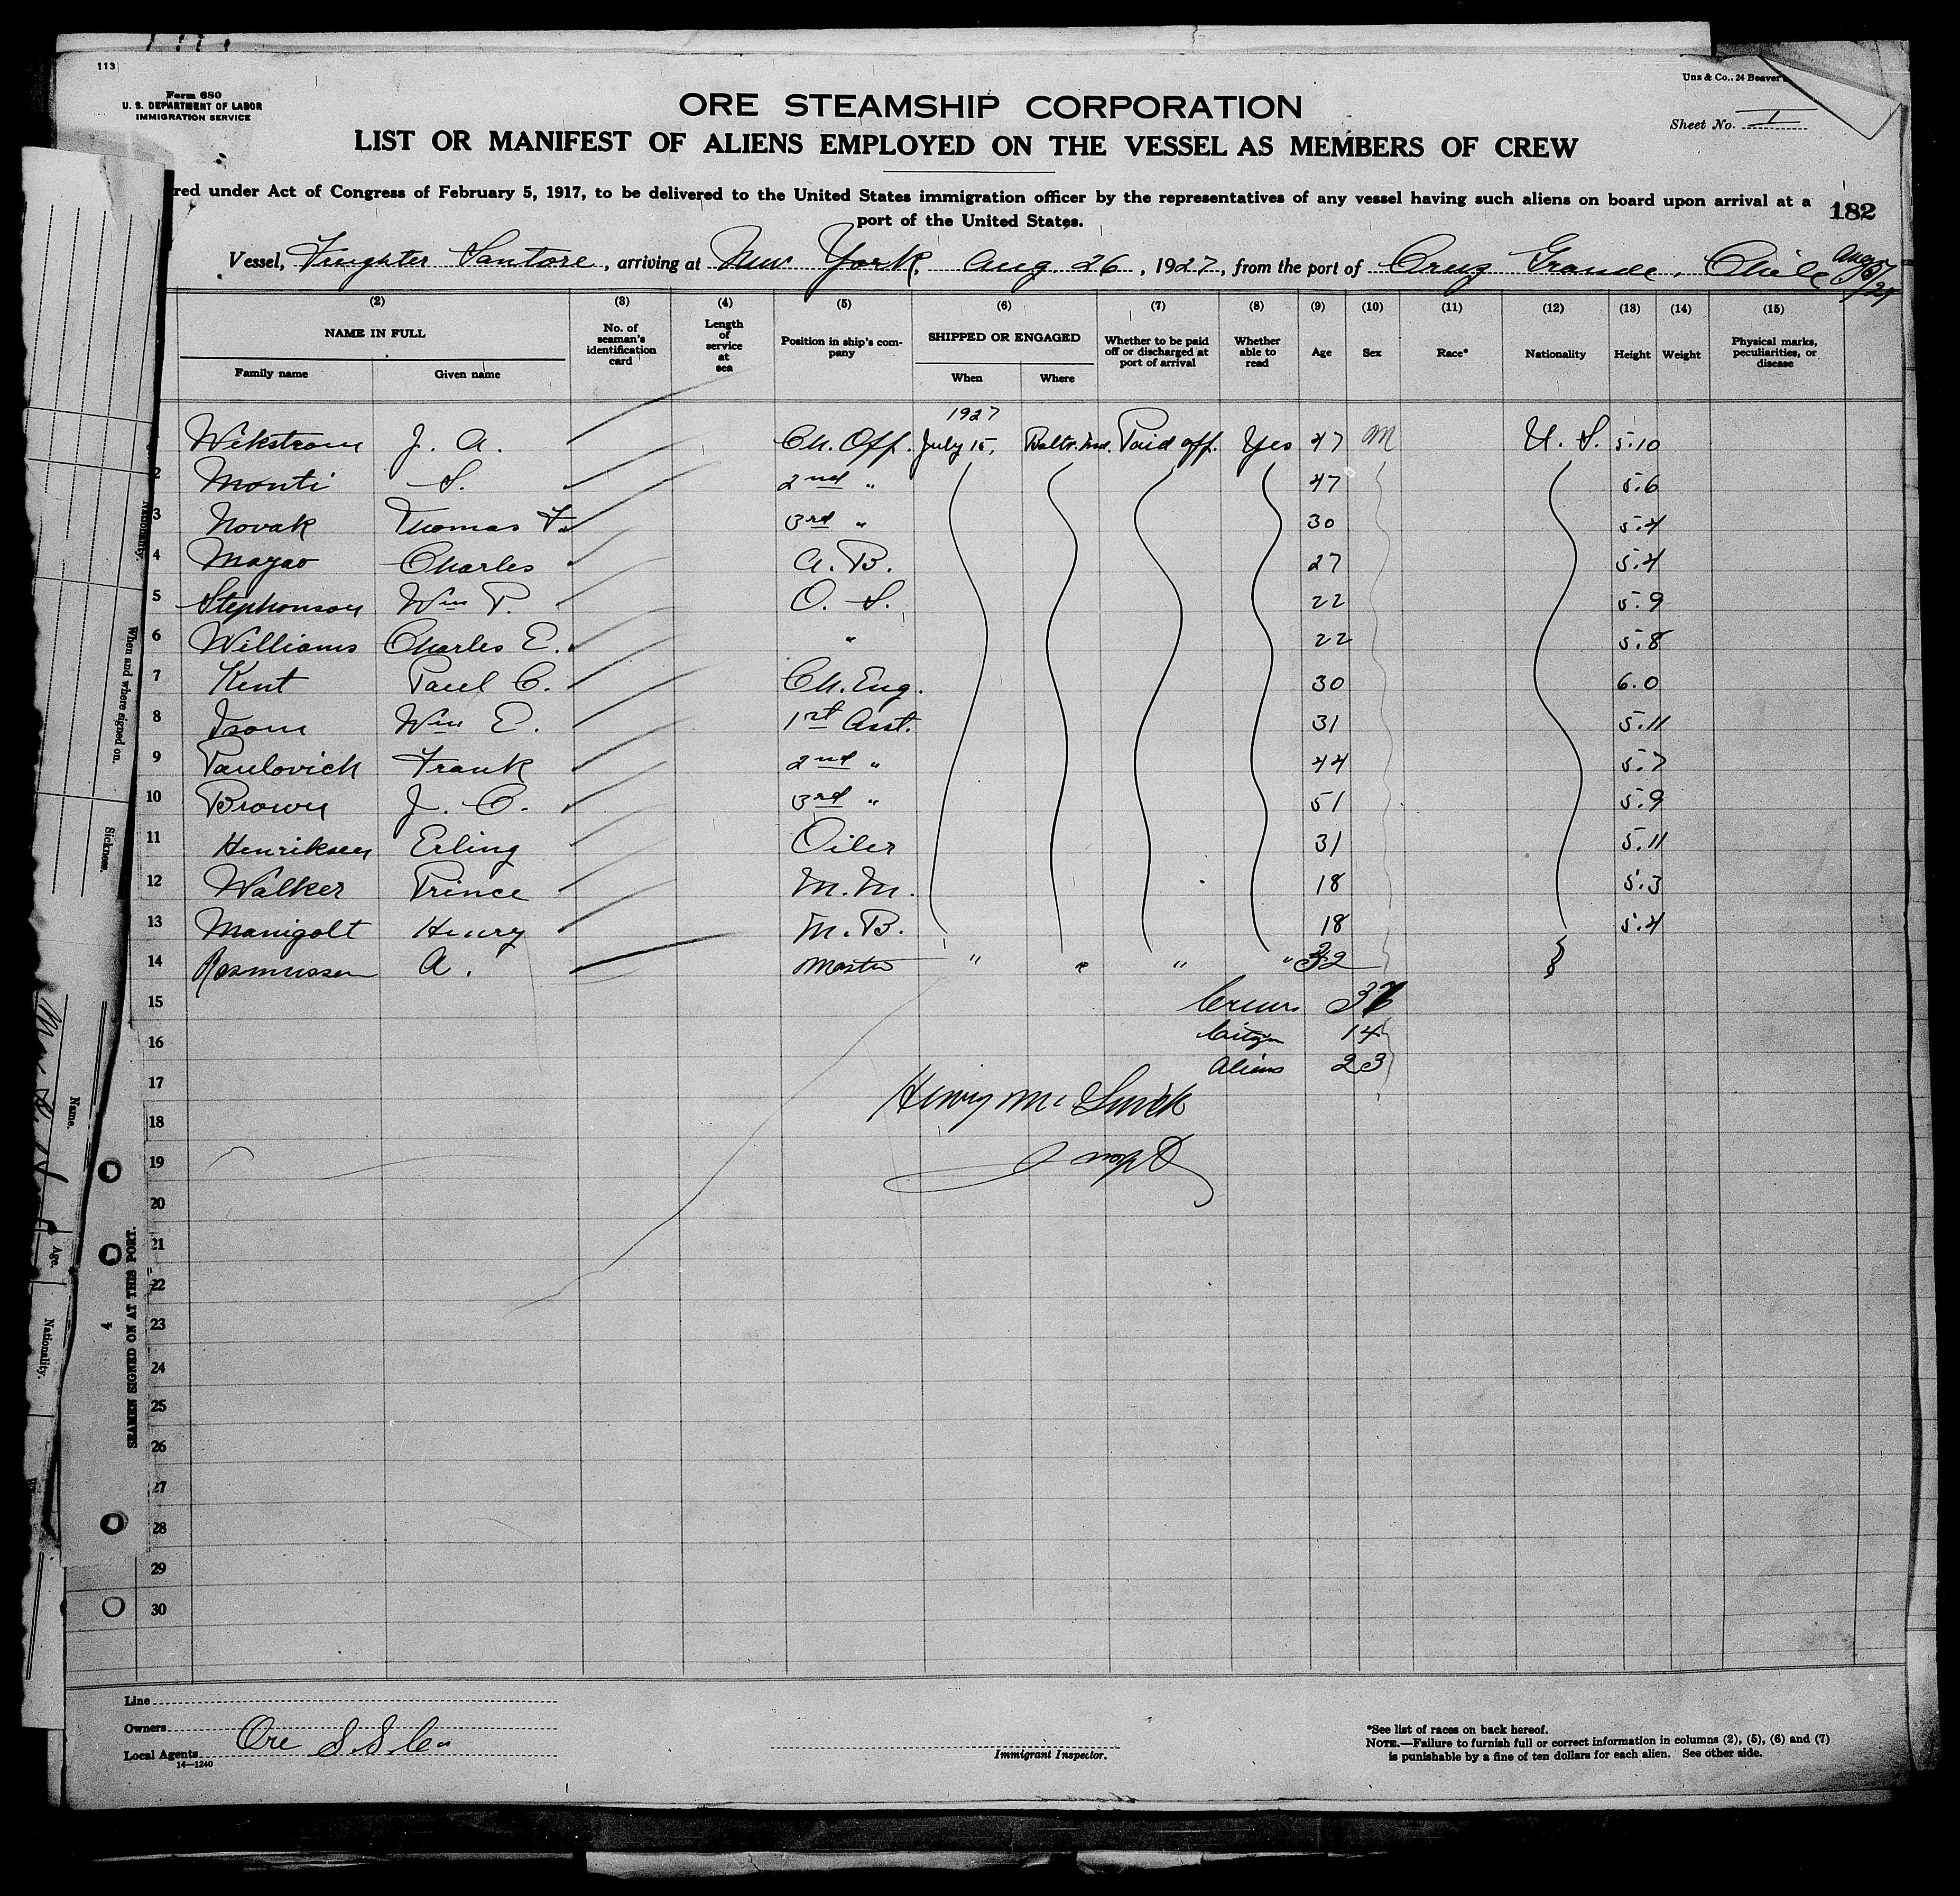 113
Form 680
U. S. DEPARTMENT OF LABOR
IMMIGRATION SERVICE
Uns & Co., 24 Beaver
ORE STEAMSHIP CORPORATION
Sheet No. I
LIST OR MANIFEST OF ALIENS EMPLOYED ON THE VESSEL AS MEMBERS OF CREW
red under Act of Congress of February 5, 1917, to be delivered to the United States immigration officer by the representatives of any vessel having such aliens on board upon arrival at a
port of the United States.
182
Vessel, Freighter Santore, arriving at New York, Aug. 26, 1927, from the port of Cruz Grande, Chile
(2) (3) (4) (5) (6) (7) (8) (9) (10) (11) (12) (13) (14) (15)
NAME IN FULL
Family name Given name
No. of seaman's identification card
Length of service at sea
Position in ship's company
SHIPPED OR ENGAGED
When Where
Whether to be paid off or discharged at port of arrival
Whether able to read
Age Sex Race* Nationality Height Weight
Physical marks, peculiarities, or disease
1927
Wikstrom J. A. Ch. Off. July 15, Balto. Md. Paid off. Yes 47 M U. S. 5.10
2 Monti S. 2nd " 47 5.6
3 Novak Thomas F. 3rd " 30 5.4
4 Mayao Charles A. B. 27 5.4
5 Stephonson Wm P. O. S. 22 5.9
6 Williams Charles E. " 22 5.8
7 Kent Paul C. Ch. Eng. 30 6.0
8 Isom Wm E. 1st Asst. 31 5.11
9 Paulovich Frank 2nd " 44 5.7
10 Brown J. C. 3rd " 51 5.9
11 Henriksen Erling Oiler 31 5.11
12 Walker Prince M. M. 18 5.3
13 Manigolt Henry M. B. 18 5.4
14 Rasmussen A. Master " " " " 32
15 Crew 37
16 Citizen 14
Aliens 23
17
18
19
20
21
22
23
24
25
26
27
28
29
30
Nationality.
When and where signed on.
Sickness.
Name.
Age.
Nationality.
SEAMEN SIGNED ON AT THIS PORT.
4
Line
Owners
Ore S.S. Co
Local Agents
14—1240
Immigrant Inspector.
*See list of races on back hereof.
NOTE.—Failure to furnish full or correct information in columns (2), (5), (6) and (7)
is punishable by a fine of ten dollars for each alien. See other side.